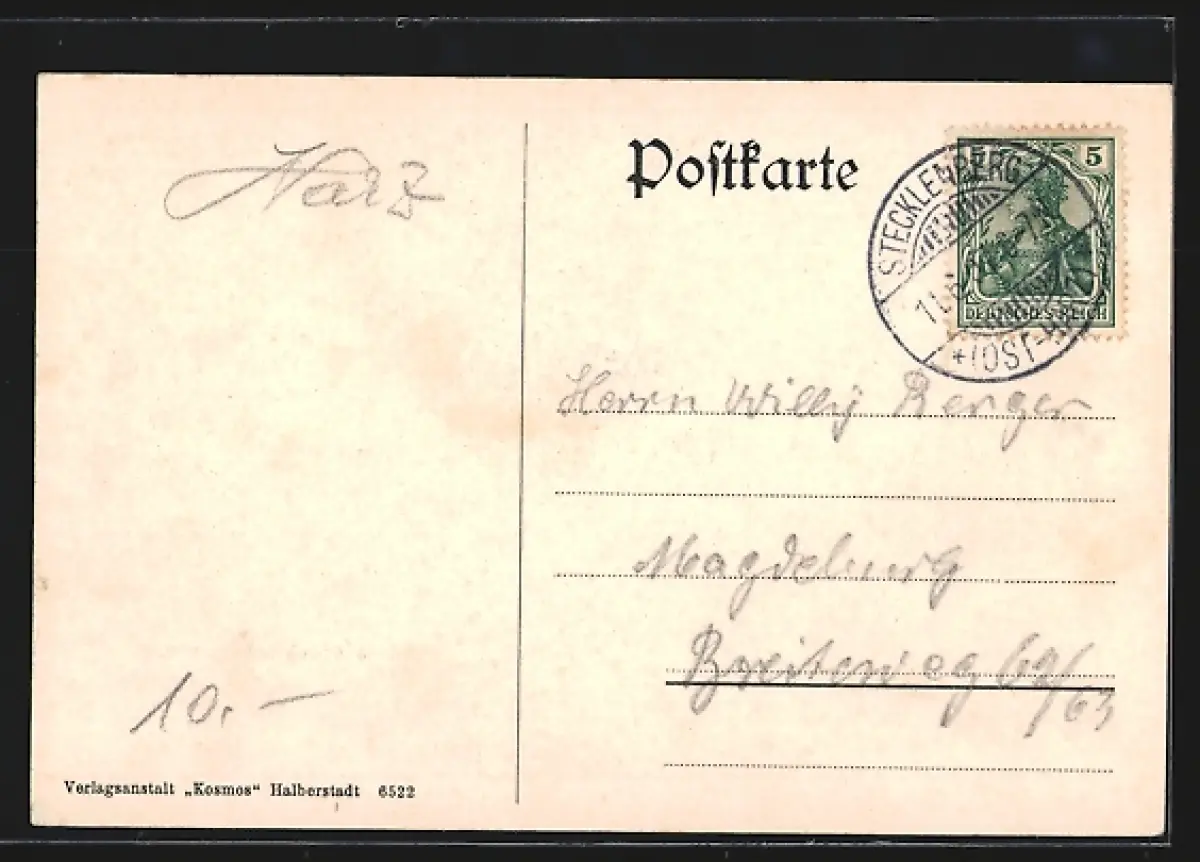 Harz
Postkarte
5
STECKLENBERG
DEUTSCHES REICH
*(OST-HA
Herrn Willy Berger
Magdeburg
Breiteweg
10.–
Verlagsanstalt „Kosmos“ Halberstadt 6522